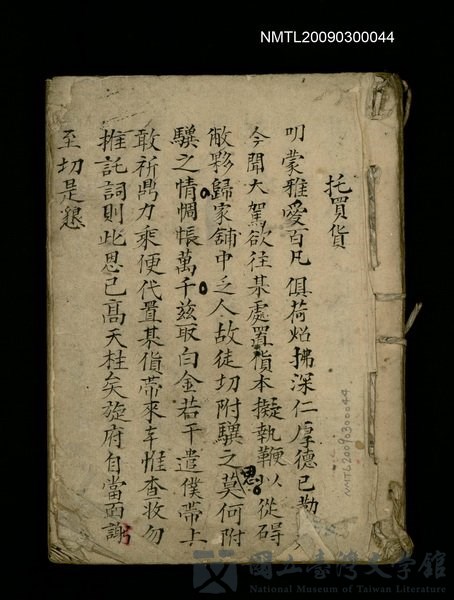 NMTL20090300044
托買貨
叨蒙雅愛百凡俱荷炤拂深仁厚德已勒
今聞大駕欲往某處置貨本擬執鞭以從碍
敝夥歸家舖中乏人故徒切附驥之思莫何附
驥之情惆悵萬千兹取白金若干遣僕帶上
敢祈鼎力乘便代置某貨帶來幸惟查收勿
推託詞則此恩已高天柱矣旋府自當面謝
至切是懇
NMTL20090300044
國立臺灣文學館
National Museum of Taiwan Literature